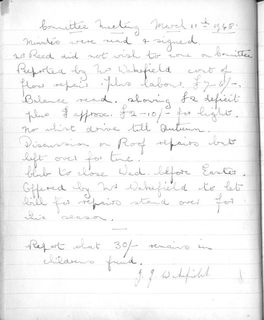 Committee Meeting March 11th 1948.
Minutes were read & signed.
Mr Reed did not wish to come on Committee
Reported by Mr Wakefield cost of
floor repair plus labour £7-6/-.
Balance read, showing £2 deficit
plus £ approx. £2-10/- for light.
No whist drive till Autumn.
Discussion on Roof repairs but
left over for time.
Club to close Wed. before Easter.
Offered by Mr Wakefield to let
bill for repairs stand over for
this season.
Report that 30/- remains in
children's fund.
J. J. Wakefield